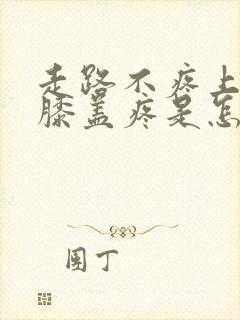 走路不疼上
膝盖疼是怎
園丁